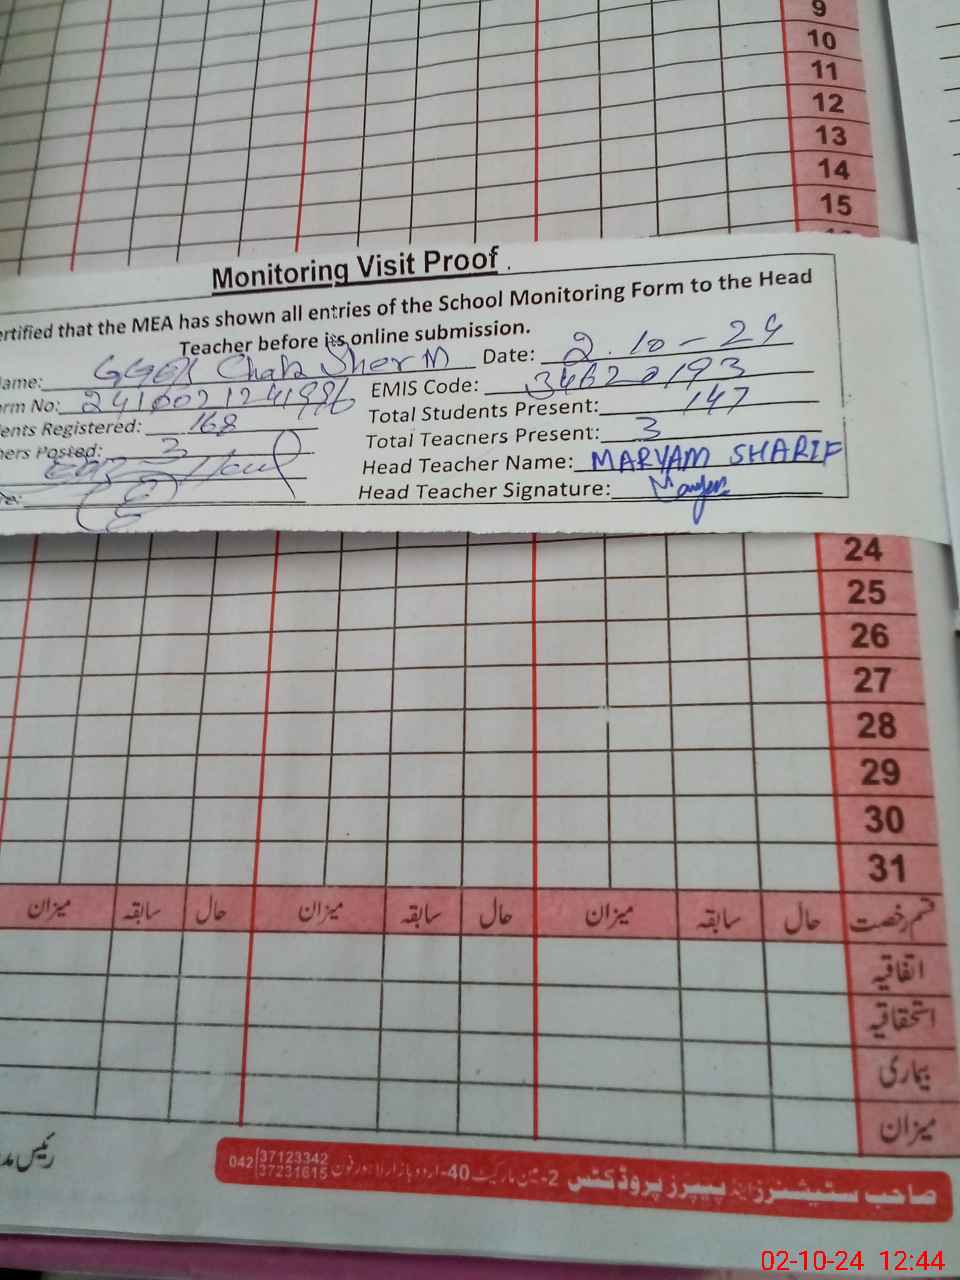 9
10
11
12
13
14
15
Monitoring Visit Proof
ertified that the MEA has shown all entries of the School Monitoring Form to the Head
Teacher before its online submission.
ame: Chak Sher M Date: 2.10-24
orm No: EMIS Code: 34620193
ents Registered: 168 Total Students Present: 147
hers Posted: 3 Total Teachers Present: 3
Head Teacher Name: MARYAM SHARIF
re: Head Teacher Signature:
24
25
26
27
28
29
30
31
قسم رخصت حال سابقہ میزان حال سابقہ میزان حال سابقہ میزان
اتفاقیہ
استحقاقیہ
بیماری
میزان
رئیس مد
صاحب سٹیشنرز اینڈ پیپرز پروڈکٹس 2-مین مارکیٹ 40-اردو بازار لاہور فون 042 37123342 37231615
02-10-24 12:44